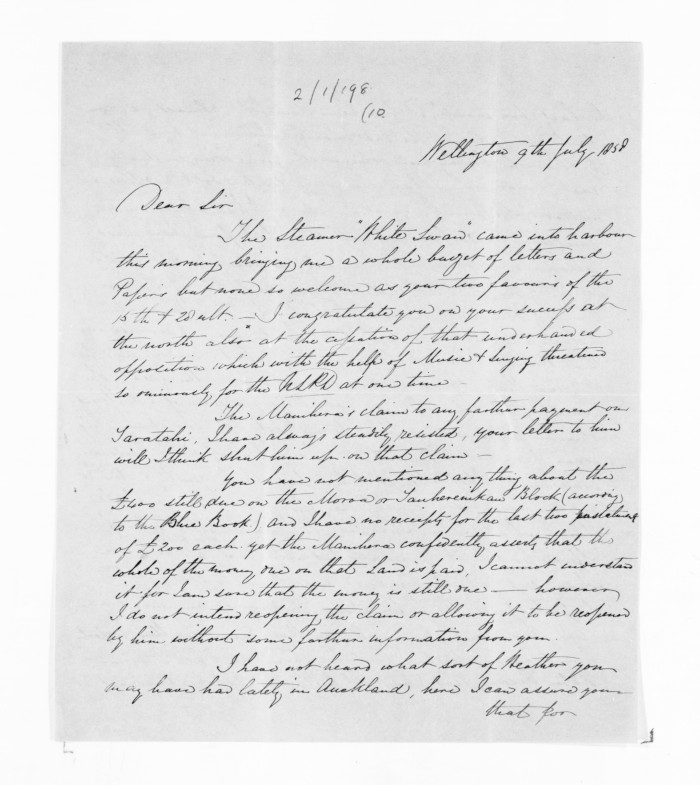 2/1/198
(10.
Wellington 9th July 1858
Dear Sir
The Steamer "White Swan" came into harbour
this morning bringing me a whole budget of letters and
Papers but none so welcome as your two favours of the
15th & 20 ult. — I congratulate you on your success at
the north also at the cessation of that underhanded
opposition which with the help of Music & Singing threatened
so ominously for the at one time —
The Manihera's claim to any farther payment on
Taratahi, I have always steadily resisted, your letter to him
will I think shut him up on that claim —
You have not mentioned anything about the
£400 still due on the Moroa or Tauherenikau Block (according
to the Blue Book) and I have no receipts for the last two
of £200 each. yet the Manihera confidently asserts that the
whole of the money due on that Land is paid, I cannot understand
it for I am sure that the money is still due — however
I do not intend reopening the claim or allowing it to be reopened
by him without some farther information from you.
I have not heard what sort of Weather you
may have had lately in Auckland, here I can assure you
that for